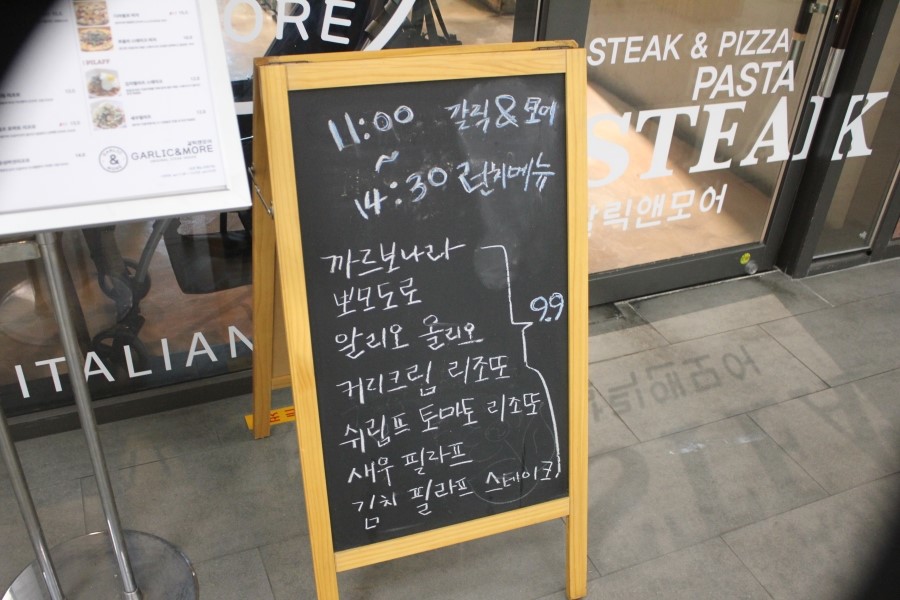 MORE
STEAK & PIZZA
PASTA
STEAK
갈릭앤모어
ITALIAN
GARLIC&MORE
11:00 갈릭&모어
~
14:30 런치메뉴
까르보나라
뽀모도로
알리오 올리오
커리크림 리조또
쉬림프 토마토 리조또
새우 필라프
김치 필라프 스테이크
9.9